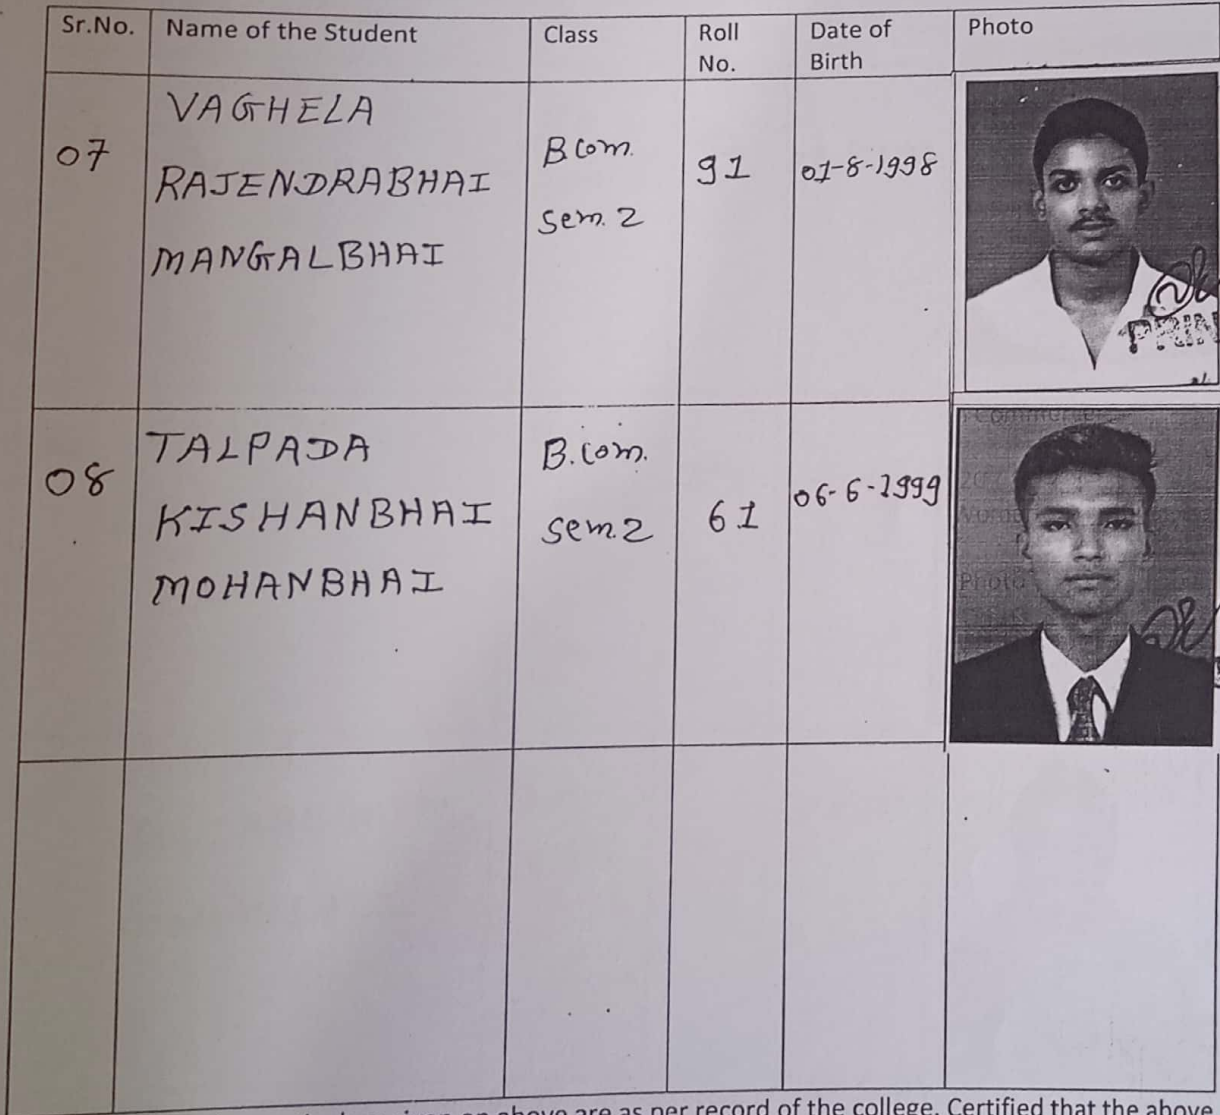 Sr.No. Name of the Student Class Roll No. Date of Birth Photo
07
VAGHELA
RAJENDRABHAI
MANGALBHAI
B com.
sem. 2
91
01-8-1998
PRIN
08
TALPADA
KISHANBHAI
MOHANBHAI
B.com.
sem. 2
61
06-6-1999
Photo
above are as per record of the college. Certified that the above